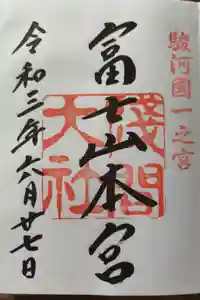 駿河國一之宮
富士山本宮
淺間大社
令和三年六月廿七日